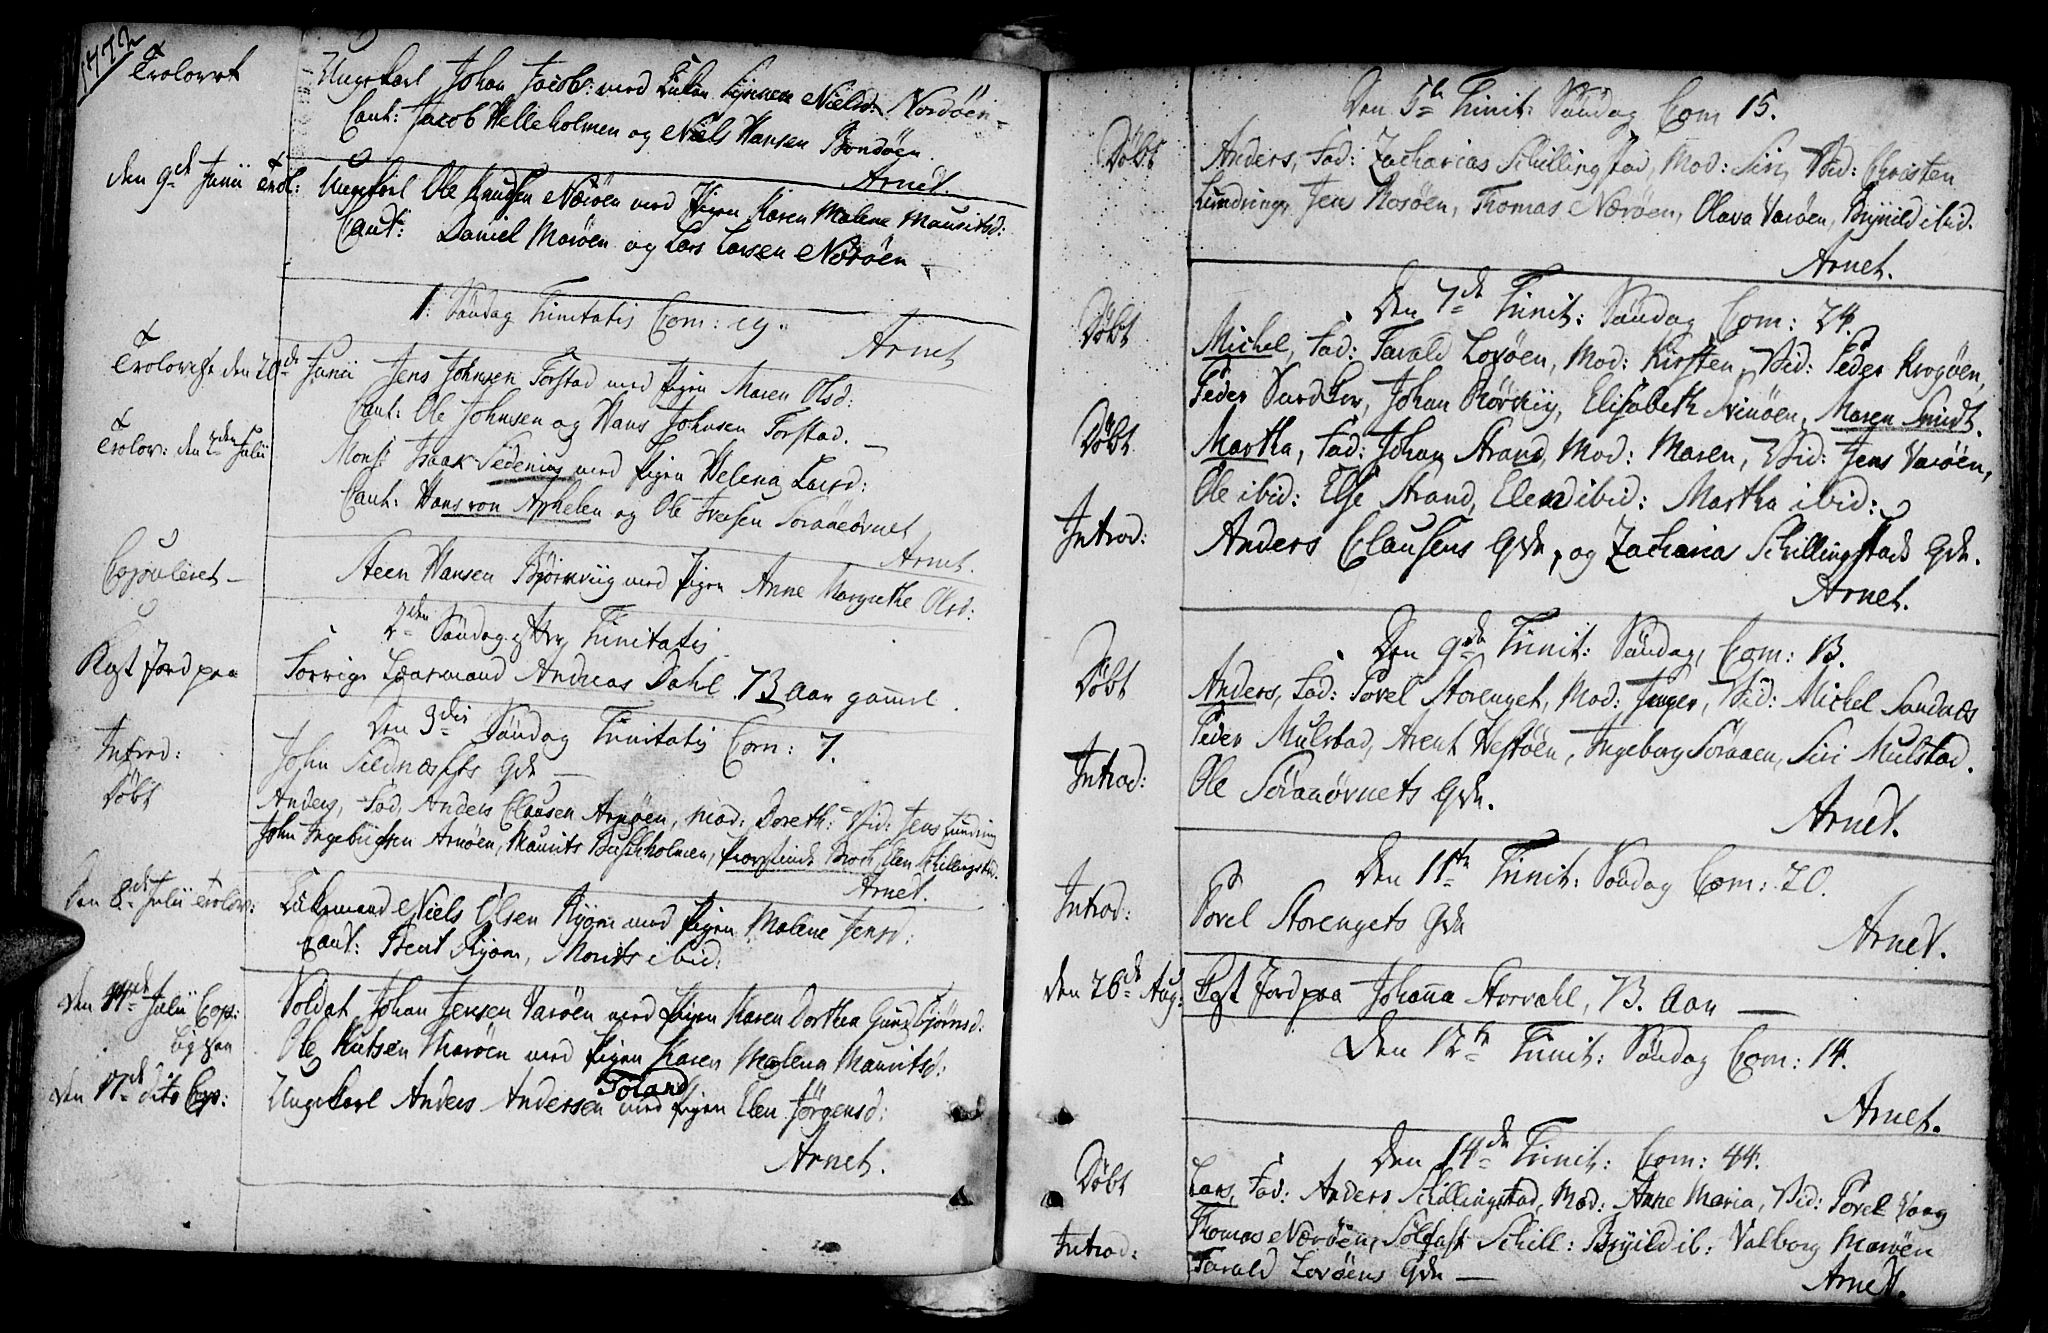 1772
Trolovet Ungekarl Johan Jacobs: med Enken Synneve Nielsd: Nordöen
Caut: Jacob Helleholmen og Niels Hansen Bondöen.
Arnet.
den 9de Junii Trol: Ungkarl Ole Knudsen Næröen med Pigen Karen Malene Mauritsd:
Caut: Daniel Maröen og Lars Larsen Næröen
1. Søndag Trinitatis Com: 19.
Arnet
Trolovet den 20de Junii Jens Johnsen Forstad med Pigen Maren Olsd:
Caut: Ole Johnsen og Hans Johnsen Forstad.
Trolov: den 2den Julii Monsr Isaak Sedenius med Pigen Helena Larsd:
Caut: Hans von Aphelen og Ole Iversen Soraaeövnet
Arnet.
Copuleret Steen Hansen Björnviig med Pigen Anne Margrethe Olsd:
2den Søndag efter Trinitatis
Kast Jord paa Sorrigs Laurmand Andreas Dahl 73 Aar gamel.
Den 3die Søndag Trinitatis Com: 7.
Introd: John Sildnæssets Qde
Döbt Anders, Fad. Anders Clausen Arnöen, Mod: Doreth: Vid: Jens Lundring
John Ingebrigtsen Arnöen, Maurits Buskholmen, Provstinde Broch, Elen Schillingstad.
Arnet.
Den 8de Julii Trolov: Enkemand Niels Olsen Ryöen med Pigen Malene Jensd:
Caut: Bent Ryöen, Morits ibid:
Den 14de Julii Cop: Soldat Johan Jensen Varöen med Pigen Karen Dorthea Gunbjörnsd:
Ligesaa Ole Knutsen Maröen med Pigen Karen Malena Mauritsd:
den 17de dito Cop: Ungekarl Anders Andersen Foland med Pigen Elen Jörgensd:
Arnet.
Den 5te Trinit: Søndag Com 15.
Döbt Anders, Fad: Zacharias Schillingstad, Mod: Siri, Vid: Christen
Lundring, Jens Mosöen, Thomas Næröen, Olava Varöen, Brynild ibid.
Arnet.
Den 7de Trinit: Søndag Com: 24.
Döbt Michel, Fad: Farald Lovöen, Mod: Kirsten, Vid: Peder Krogöen,
Peder Sandker, Johan Rörviig, Elisabeth Svinöen, Maren Smidt.
Döbt Martha, Fad: Johan Strand, Mod: Maren, Vid: Jens Varöen,
Ole ibid: Else Strand, Elen ibid: Martha ibid:
Introd: Anders Clausens Qde, og Zacharia Schillingstads Qde.
Arnet.
Den 9de Trinit: Søndag, Com: 13.
Döbt Anders, Fad: Povel Storenget, Mod: Inger, Vid: Michel Sandnæs
Peder Mulstad, Arent Hestöen, Ingeborg Soraaen, Siri Mulstad.
Introd: Ole Soraaövnets Qde.
Arnet.
Den 11te Trinit: Søndag Com: 20.
Introd: Povel Storengets Qde
Arnet.
den 26de Aug: Kast Jord paa Johanna Storvahl, 73. Aar
Den 12te Trinit: Søndag Com: 14.
Arnet.
Den 14de Trinit: Com: 44.
Döbt Lars, Fad: Anders Schillingstad, Mod: Anne Maria, Vid: Povel Vaag
Thomas Næröen, Solfast Schill: Bryild ib: Valborg Maröen
Introd: Farald Lovöens Qde
Arnet.